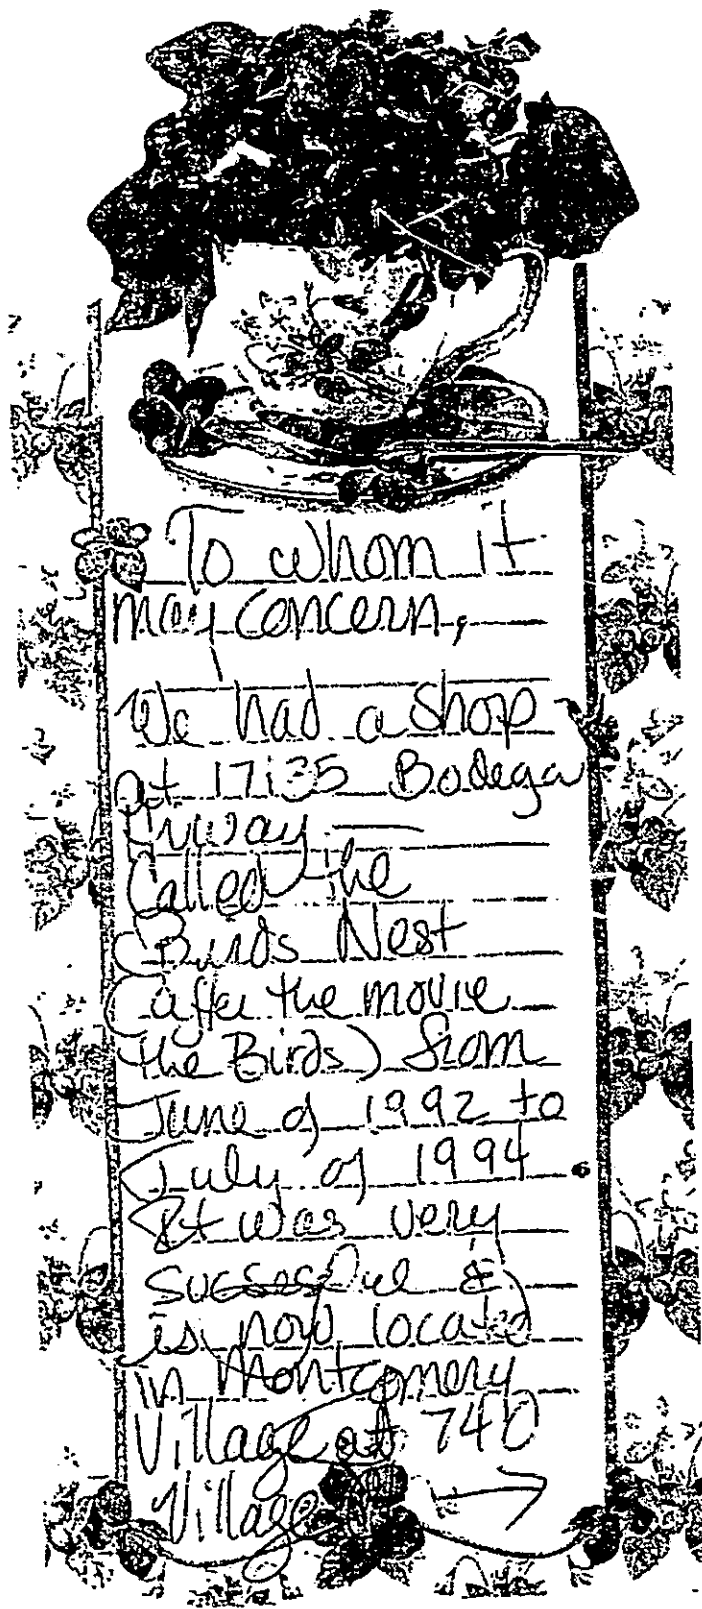 To whom it
may concern,
We had a shop
at 17135 Bodega
Hwway —
Called the
Birds Nest
(after the movie
the Birds) from
June of 1992 to
July of 1994.
It was very
sucsesful &
is now located
in Montgomery
Village at 740
Village →